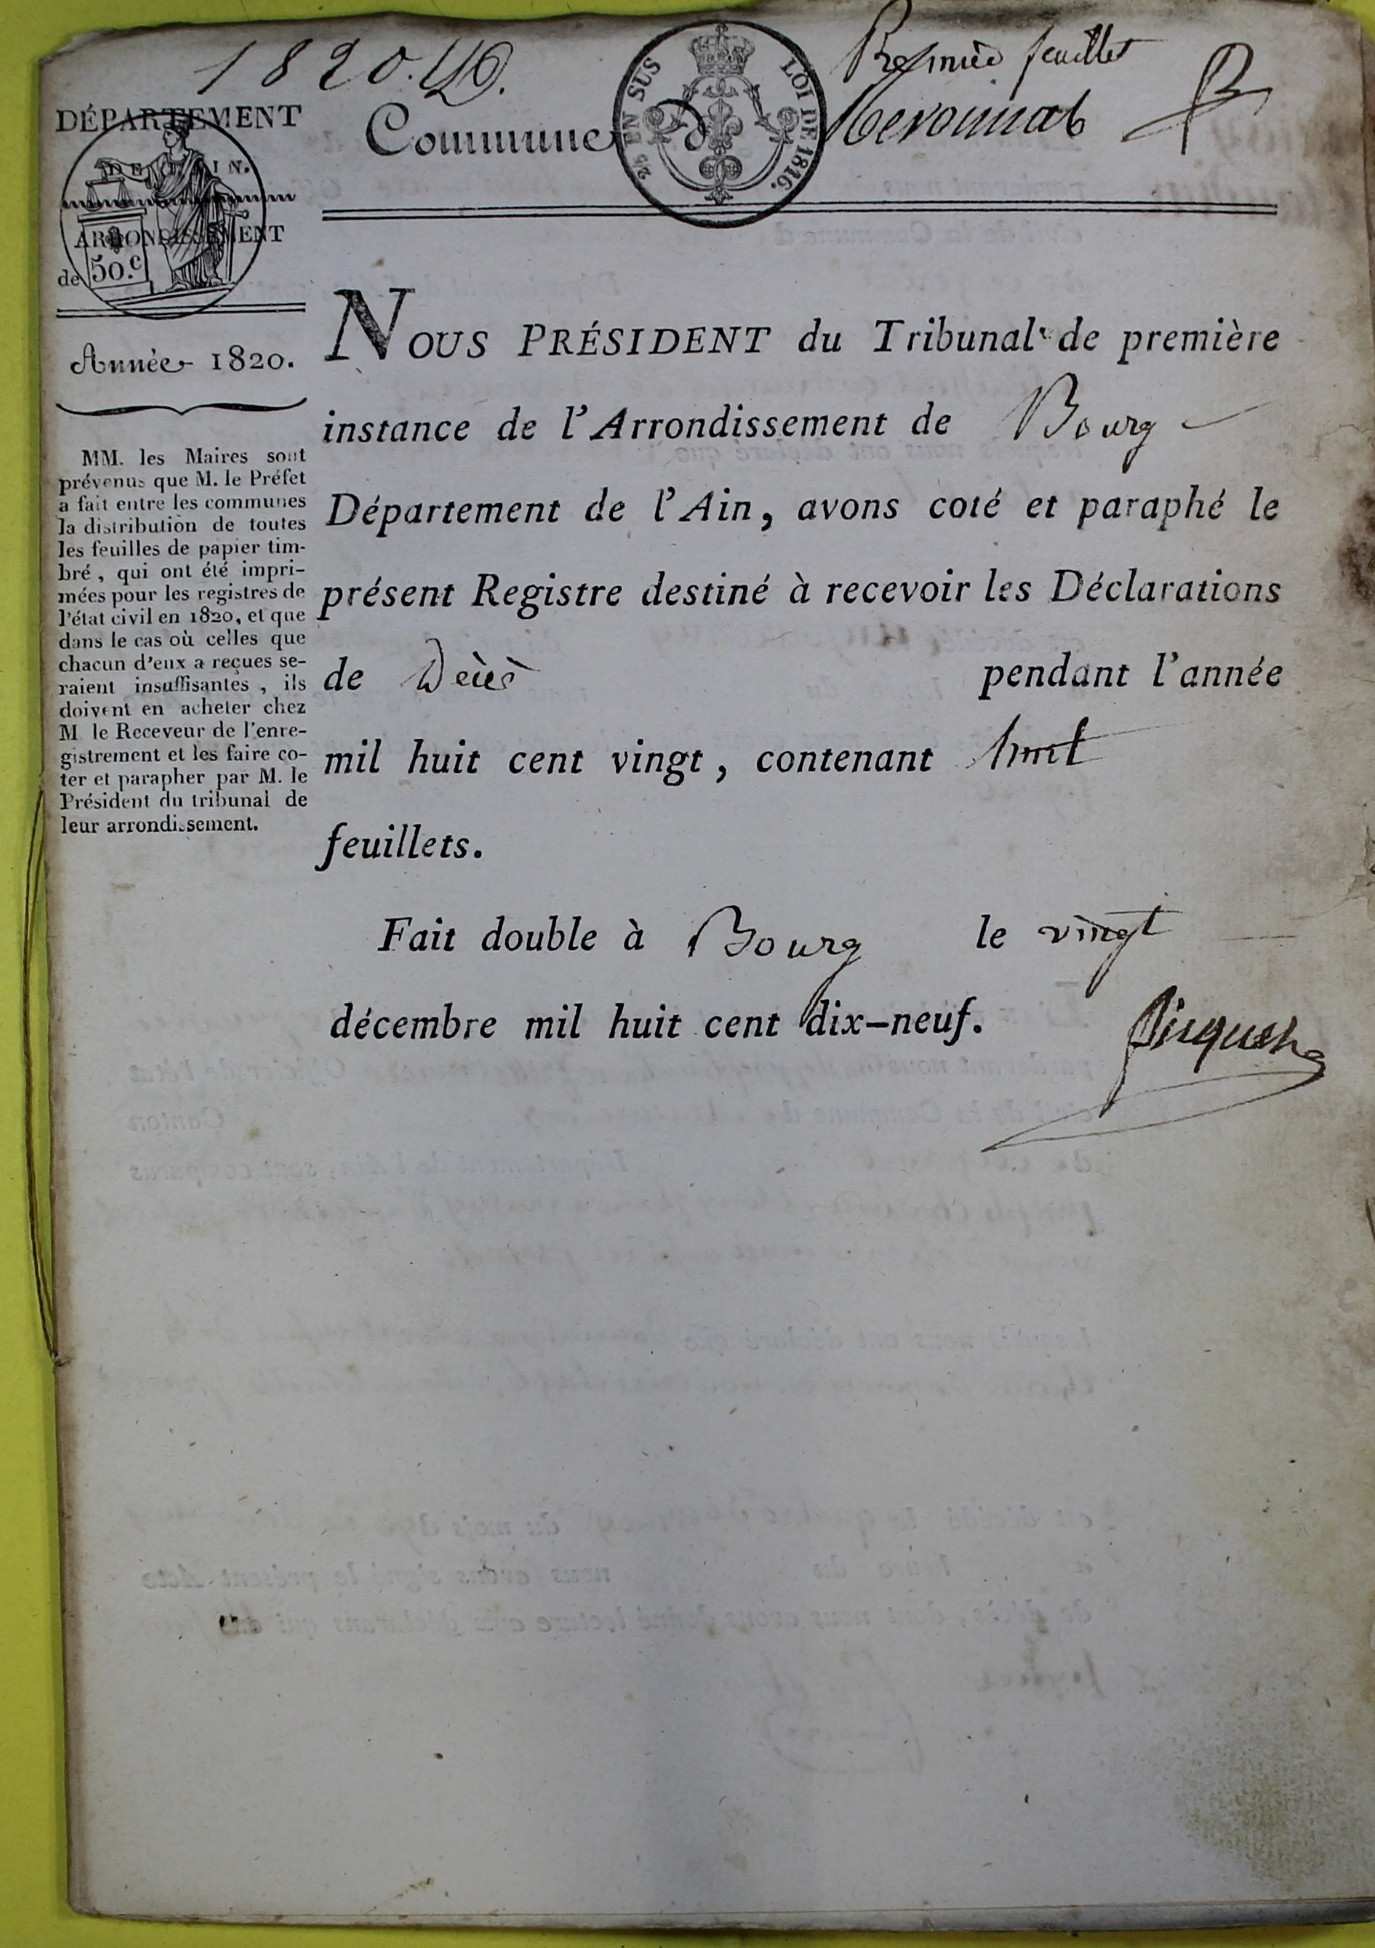 1820.
Premier feuillet
DÉPARTEMENT
DE L'AIN.
ARRONDISSEMENT
de
50.c
Commune d
25 EN SUS
LOI DE 1816.
Année 1820.
MM. les Maires sont
prévenus que M. le Préfet
a fait entre les communes
la distribution de toutes
les feuilles de papier tim-
bré, qui ont été impri-
mées pour les registres de
l'état civil en 1820, et que
dans le cas où celles que
chacun d'eux a reçues se-
raient insuffisantes, ils
doivent en acheter chez
M. le Receveur de l'enre-
gistrement et les faire co-
ter et parapher par M. le
Président du tribunal de
leur arrondissement.
NOUS PRÉSIDENT du Tribunal de première
instance de l'Arrondissement de Bourg
Département de l'Ain, avons coté et paraphé le
présent Registre destiné à recevoir les Déclarations
de Décès pendant l'année
mil huit cent vingt, contenant huit
feuillets.
Fait double à Bourg le vingt
décembre mil huit cent dix-neuf.